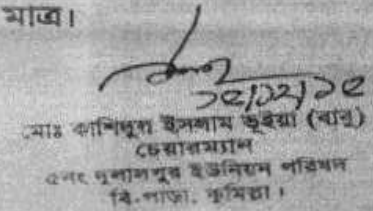 মাত্র।
১৫/১২/১৫
মোঃ কাশিদুল ইসলাম ভূইয়া (বাবু)
চেয়ারম্যান
৫নং দুলালপুর ইউনিয়ন পরিষদ
বি-পাড়া, কুমিল্লা।